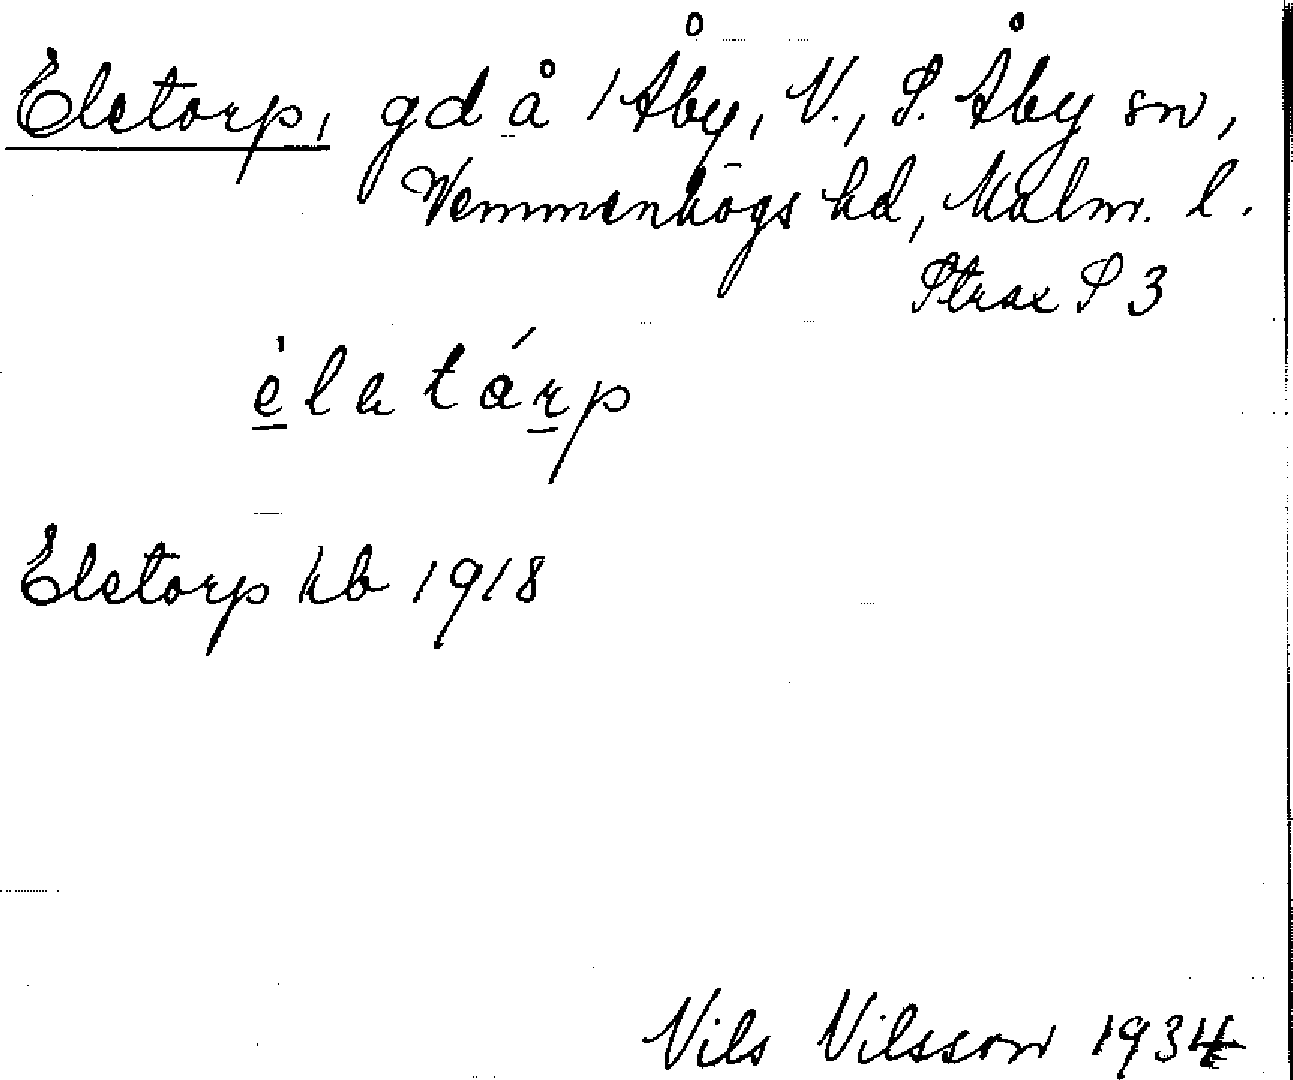 Elstorp, gd å 1 Åby, V., S. Åby sn,
Vemmenhögs hd, Malm. l.
Strax S 3
Elstorp kb 1918
Nils Nilsson 1934